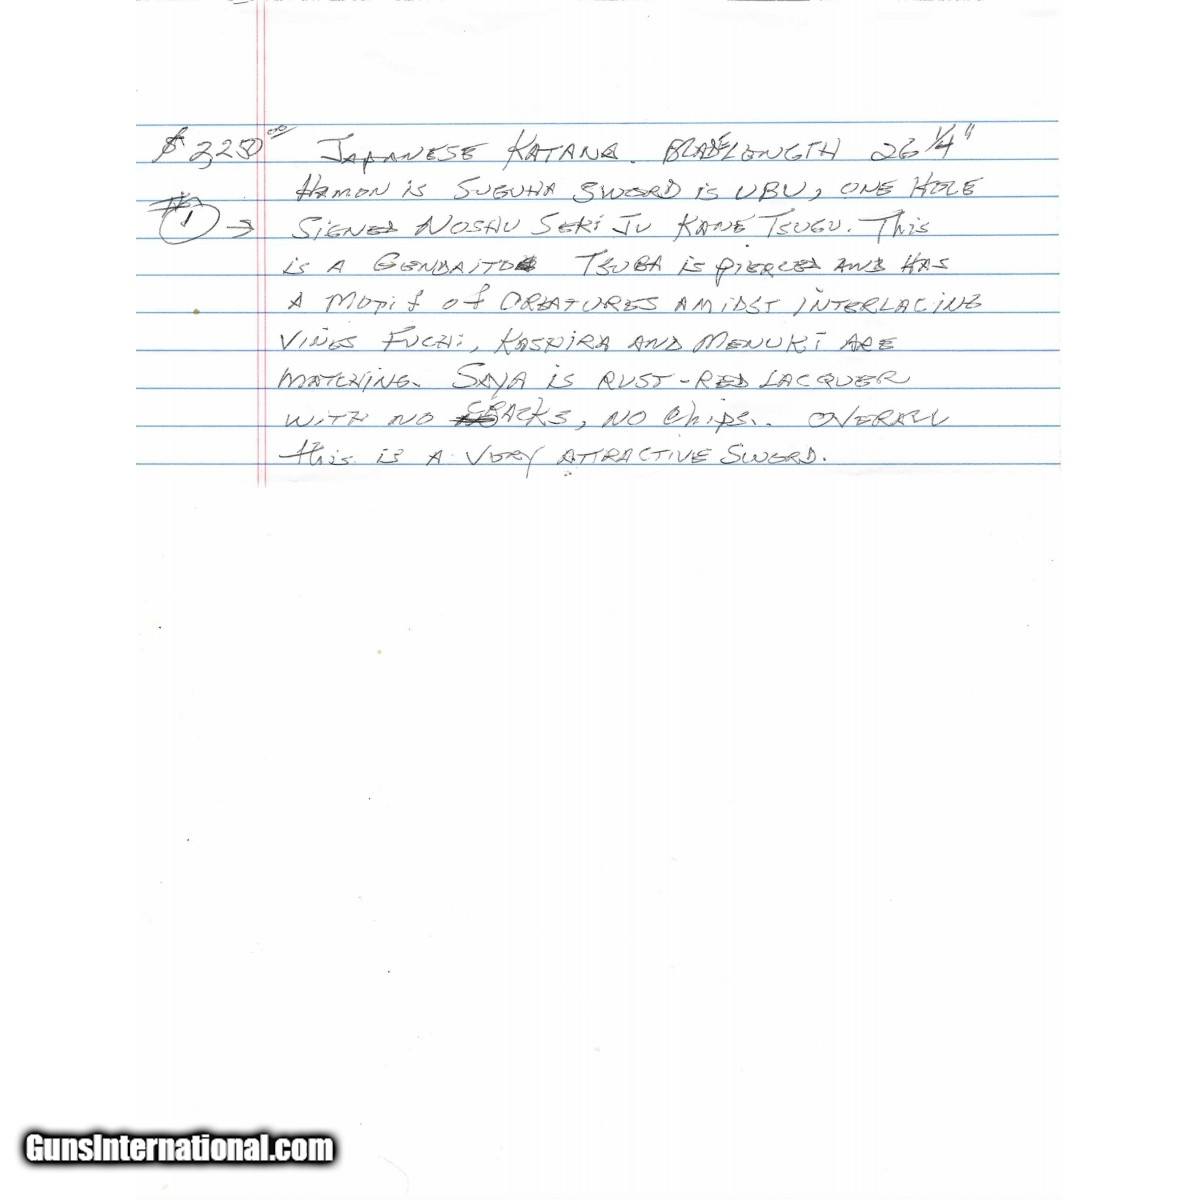 $ 3,250 00 JAPANESE KATANA. BLADE LENGTH 26 1/4"
HAMON iS SUGUHA SWORD iS UBU, ONE HOLE
#1 → SiGNED NOSHU SEKi JU KANE TSUGU. This
iS A GENDAITO TSUBA iS PiERCED AND HAS
A MOTif of CREATURES AMiDST iNTERLACiNG
ViNES FUCHi, KASHiRA AND MENUKi ARE
MATCHING. SAYA iS RUST-RED LACQUER
WiTH NO CRACKS, NO Chips.. OVERALL
this iS A VERY ATTRACTIVE SWORD.
GunsInternational.com